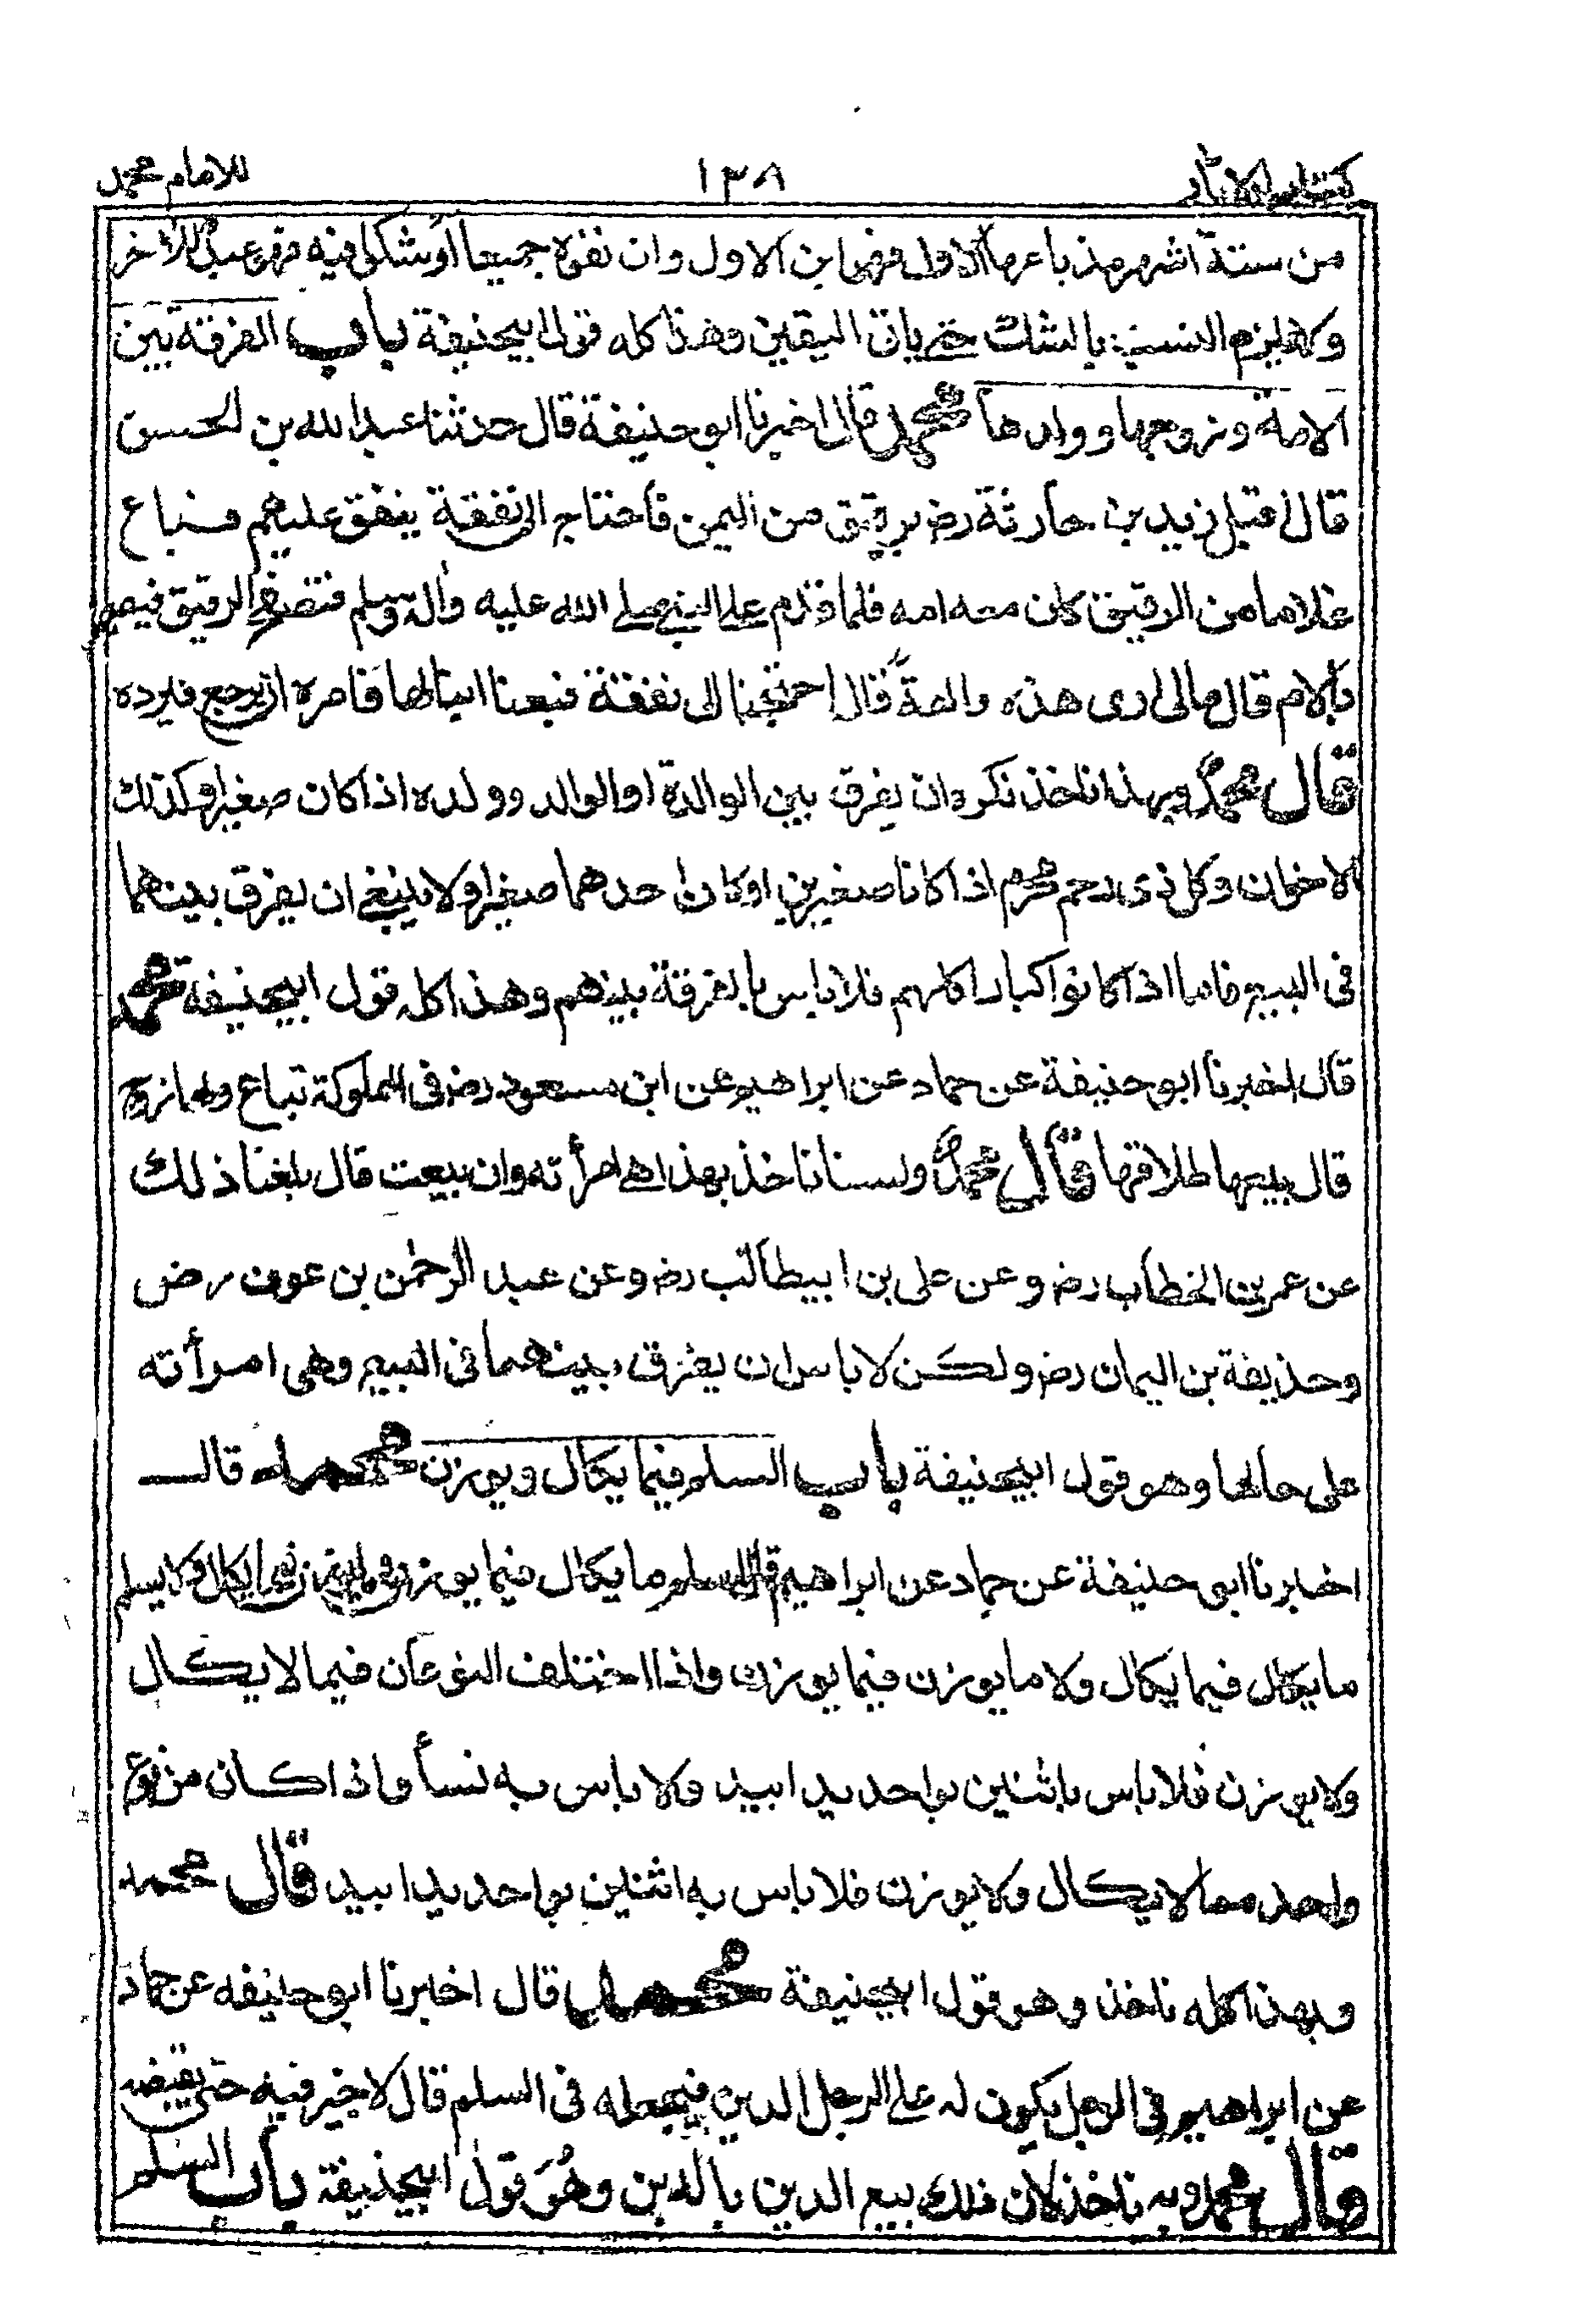 كتاب الاثار ١٣٨ للامام محمد
من ستة اشهر منذ باعها الاول فهو ابن الاول وان نفوه جميعا او شكوا فيه فهو عبد للآخر
ولا يلزم النسب بالشك حتى ياتى اليقين وهذا كله قول ابيحنيفة باب الفرقة بين
الامة وزوجها وولدها محمد قال اخبرنا ابو حنيفة قال حدثنا عبد الله بن الحسن
قال اقبل زيد بن حارثة رض برقيق من اليمن فاحتاج الى نفقة ينفق عليهم فباع
غلاما من الرقيق كان معه امه فلما قدم على النبى صلى الله عليه وآله وسلم فتصفح الرقيق فبصر
بالام قال مالى ارى هذه والهة قال احتجنا الى نفقة فبعنا ابنا لها فامره ان يرجع فيرده
قال محمد وبهذا ناخذ نكره ان يفرق بين الوالدة او الوالد وولده اذا كان صغيرا وكذلك
الاخوان وكل ذى رحم محرم اذا كانا صغيرين او كان احدهما صغيرا ولا ينبغى ان يفرق بينهما
فى البيع فاما اذا كانوا كبارا كلهم فلا باس بالفرقة بينهم وهذا كله قول ابيحنيفة محمد
قال اخبرنا ابو حنيفة عن حماد عن ابراهيم عن ابن مسعود رض فى المملوكة تباع ولها زوج
قال بيعها طلاقها قال محمد ولسنا ناخذ بهذا هى امرأته وان بيعت قال بلغنا ذلك
عن عمر بن الخطاب رض وعن على بن ابيطالب رض وعن عبد الرحمن بن عوف رض
وحذيفة بن اليمان رض ولكن لا باس ان يفرق بينهما فى البيع وهى امرأته
على حالها وهو قول ابيحنيفة باب السلم فيما يكال ويوزن محمد قال
اخبرنا ابى حنيفة عن حماد عن ابراهيم قال اسلم ما يكال فيما يوزن وما يوزن فيما يكال ولا يسلم
ما يكال فيما يكال ولا ما يوزن فيما يوزن واذا اختلف النوعان فيما لا يكال
ولا يوزن فلا باس باثنين بواحد يدا بيد ولا باس به نسأ واذا كان من نوع
واحد مما لا يكال ولا يوزن فلا باس به اثنين بواحد يدا بيد قال محمد
وبهذا كله ناخذ وهو قول ابيحنيفة محمد قال اخبرنا ابو حنيفه عن حماد
عن ابراهيم فى الرجل يكون له على الرجل الدين فيجعله فى السلم قال لا خير فيه حتى يقبضه
قال محمد وبه ناخذ لان ذلك بيع الدين بالدين وهُوَ قول ابيحنيفة باب السلم